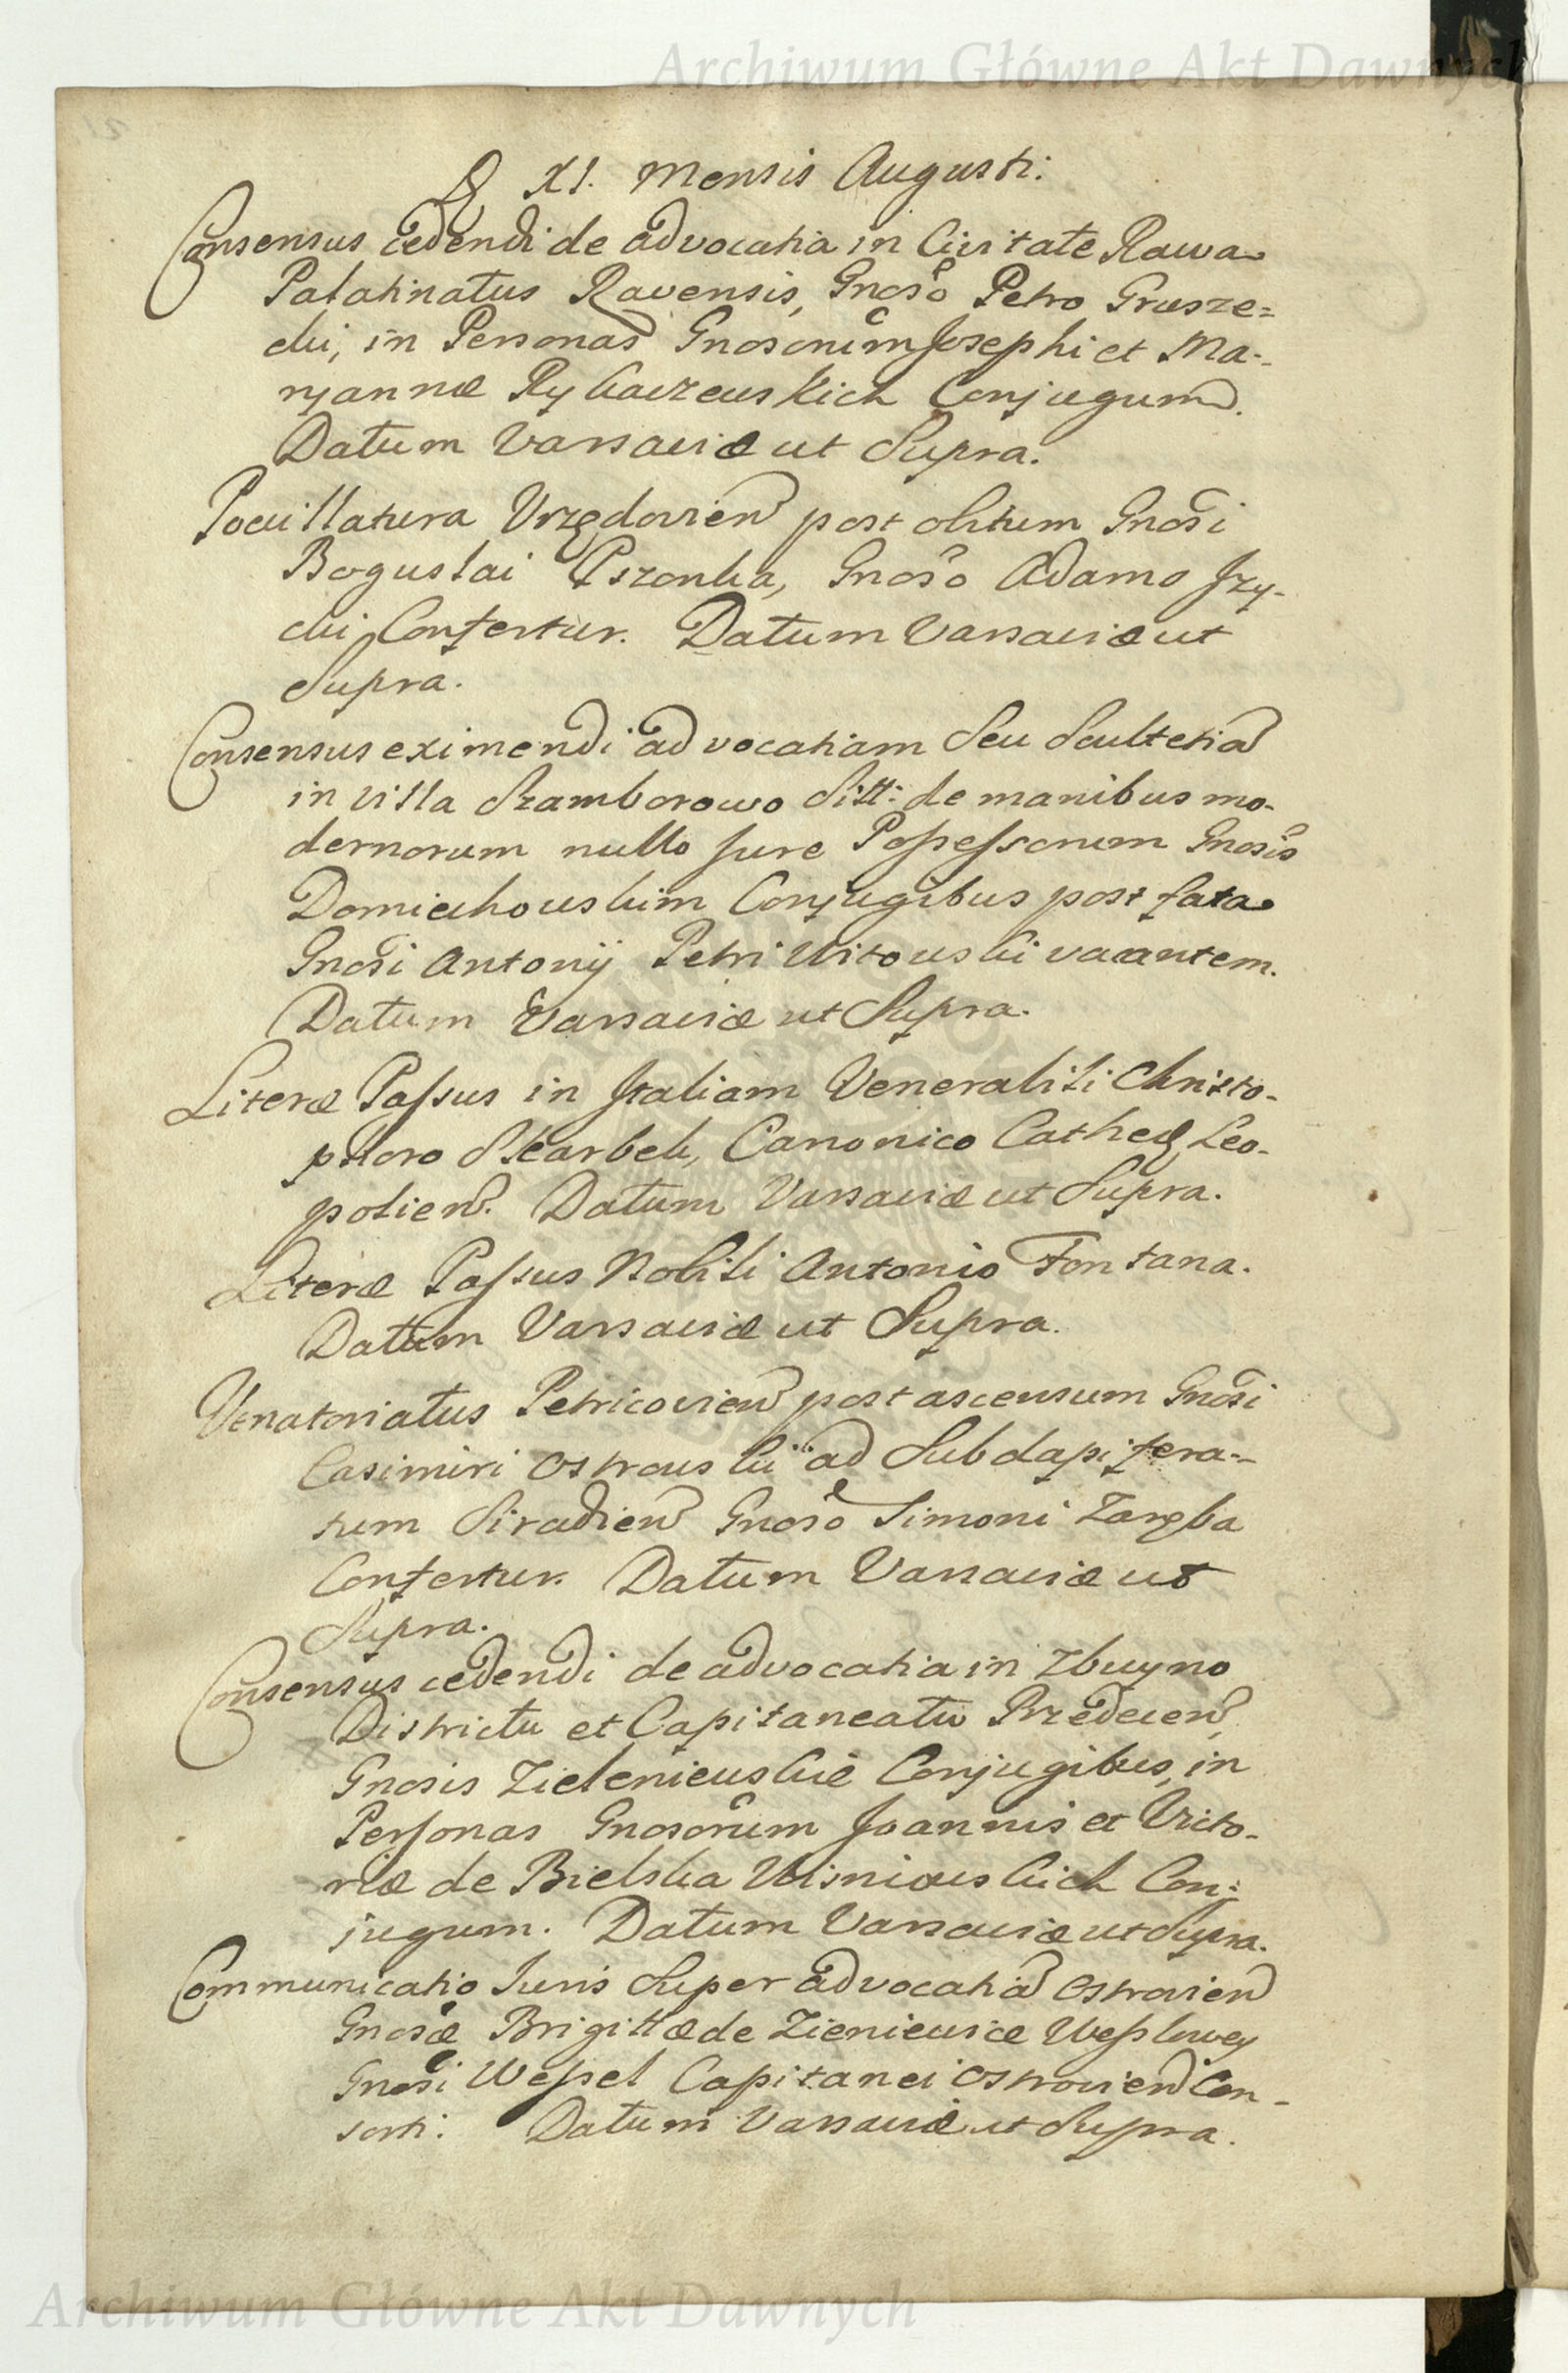 Archiwum Główne Akt Dawnych
D XI. Mensis Augusti:
Consensus cedendi de advocatia in Civitate Rawa
Palatinatus Ravensis, Gnoso Petro Grusze=
cki, in Personas Gnosorum Josephi et Ma-
ryannæ Rybaczewskich Conjugum.
Datum Varsaviæ ut Supra.
Pocillatura Vrzędovien post obitum Gnosi
Boguslai Pszonka, Gnoso Adamo Jzy-
cki Confertur. Datum Varsaviæ ut
Supra.
Consensus eximendi advocatiam Seu Scultetia
in Villa Szamborowo Sitt: de manibus mo-
dernorum nullo Jure Poſseſsorum Gnosis
Domiechowskim Conjugibus post fata
Gnosi Antonij Petri Witowski vacantem.
Datum Varsaviæ ut Supra.
Literæ Paſsus in Italiam Venerabili Christo-
phoro Skarbek, Canonico Cathed Leo-
polien. Datum Varsaviæ ut Supra.
Literæ Paſsus Nobili Antonio Fontana.
Datum Varsaviæ ut Supra.
Venatoriatus Petricovien post ascensum Gnosi
Casimiri Ostrowski ad Subdapifera-
tum Siradien Gnoso Simoni Zaręba
Confertur. Datum Varsaviæ ut
Supra.
Consensus cedendi de advocatia in Zbuyno
Districtu et Capitaneatu Przedecen,
Gnosis Zieleniewskie Conjugibus, in
Perſonas Gnosorum Joannis et Victo-
riæ de Bielska Wisniowskich Con-
jugum. Datum Varsaviæ ut Supra.
Communicatio Iuris Super advocatia Ostrovien
Gnosæ Brigittæ de Zieniewice Weſslowey
Gnosi Weſsel Capitanei Ostrovien Con-
sorti: Datum Varsaviæ ut Supra.
Archiwum Główne Akt Dawnych